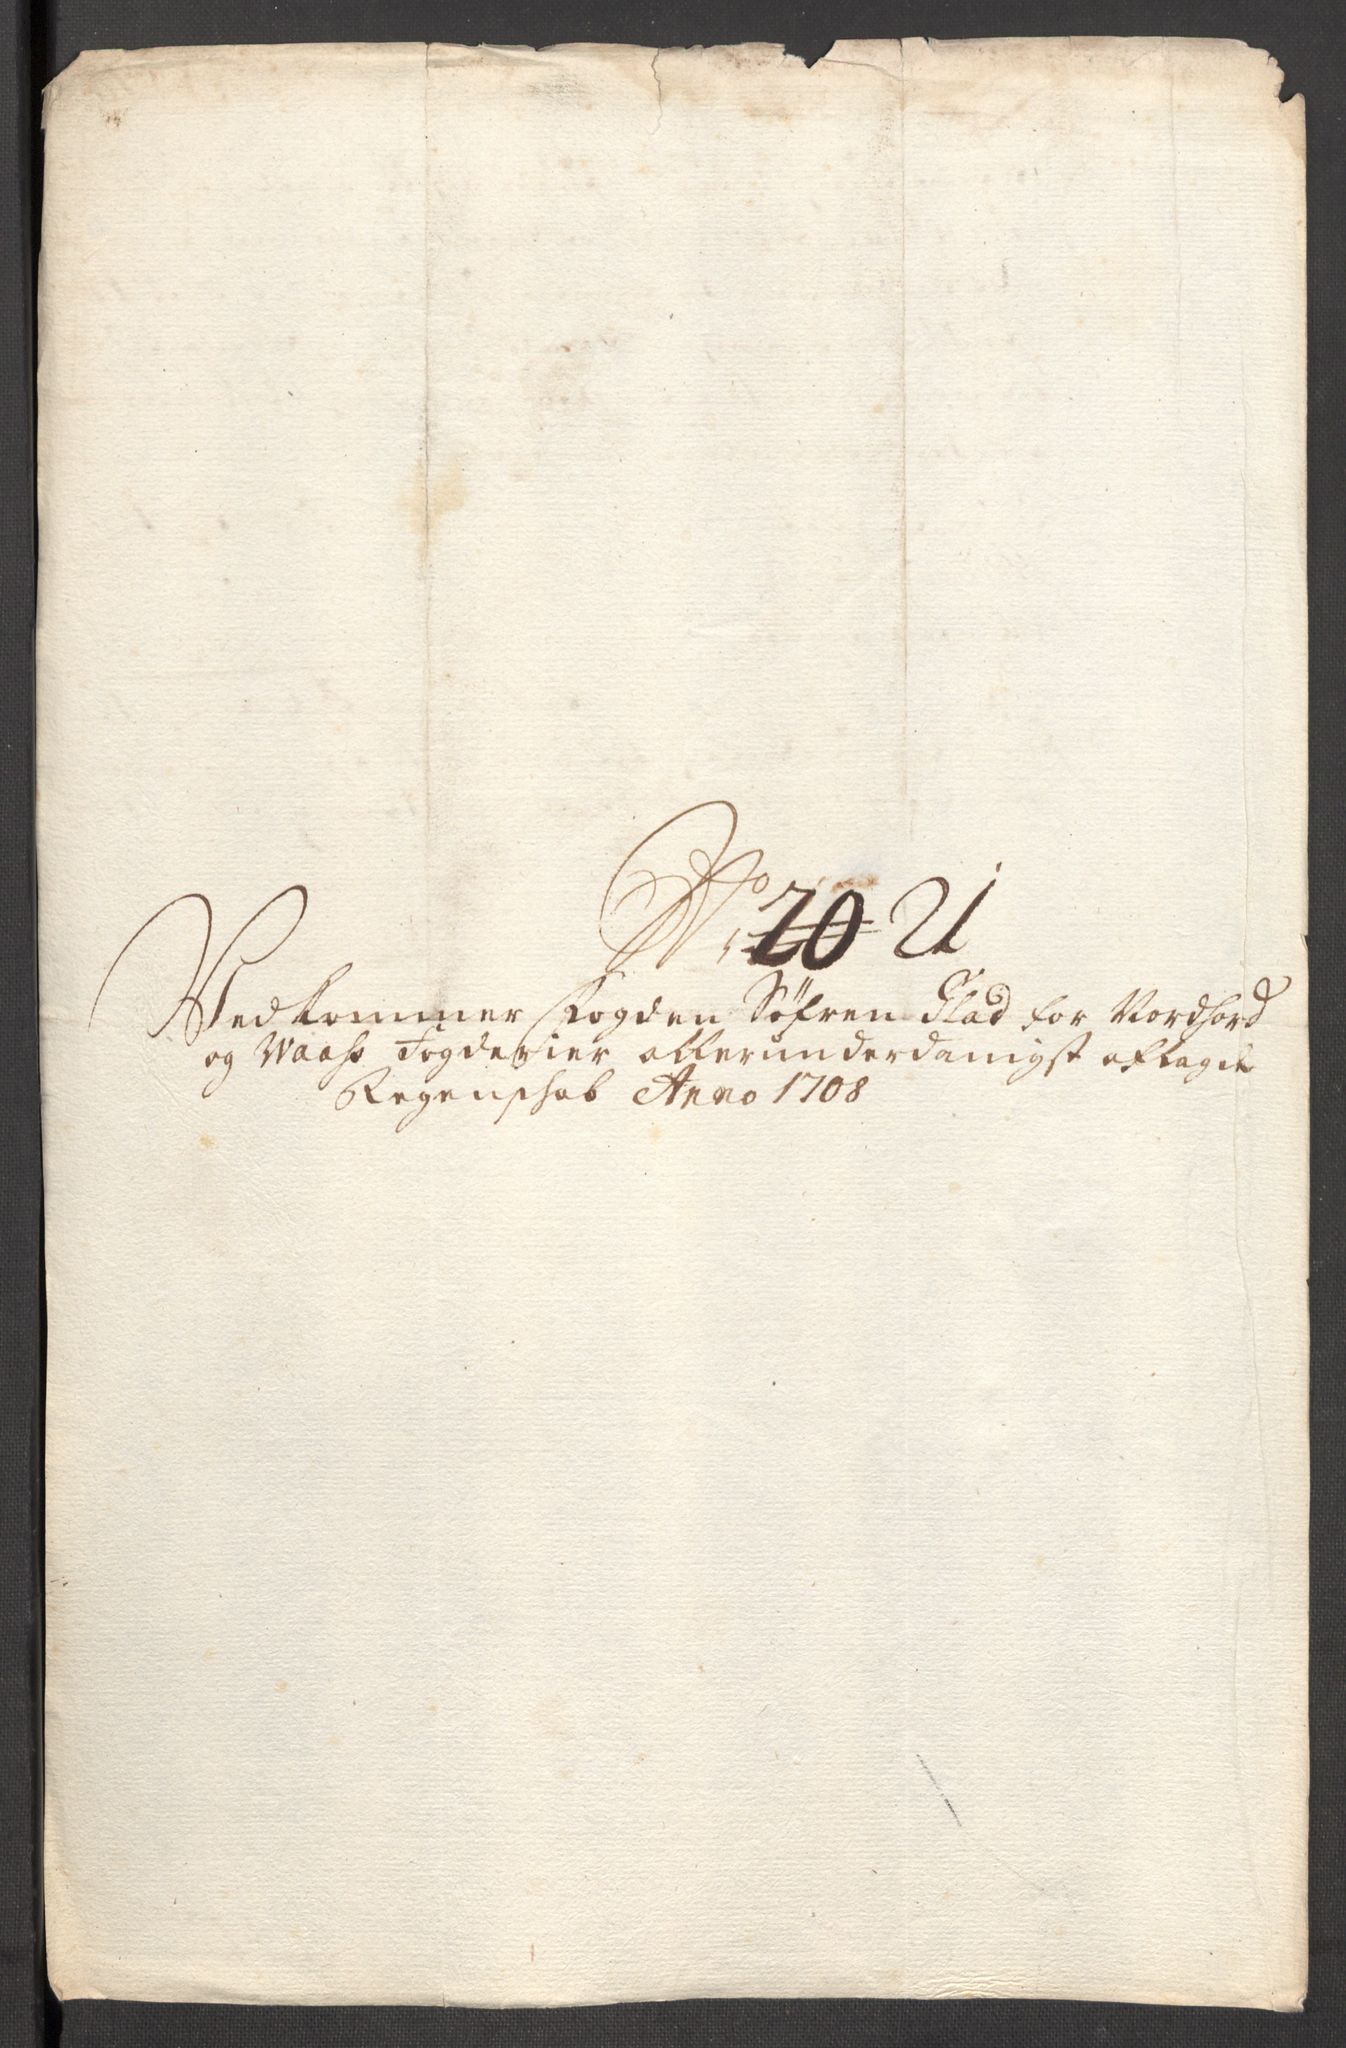 No 20 21
Vedkommer Fogden Söfren Glad for Nordhord
og Waahs Fogderier allerunderdanigst aflagde
Regenschab Anno 1708